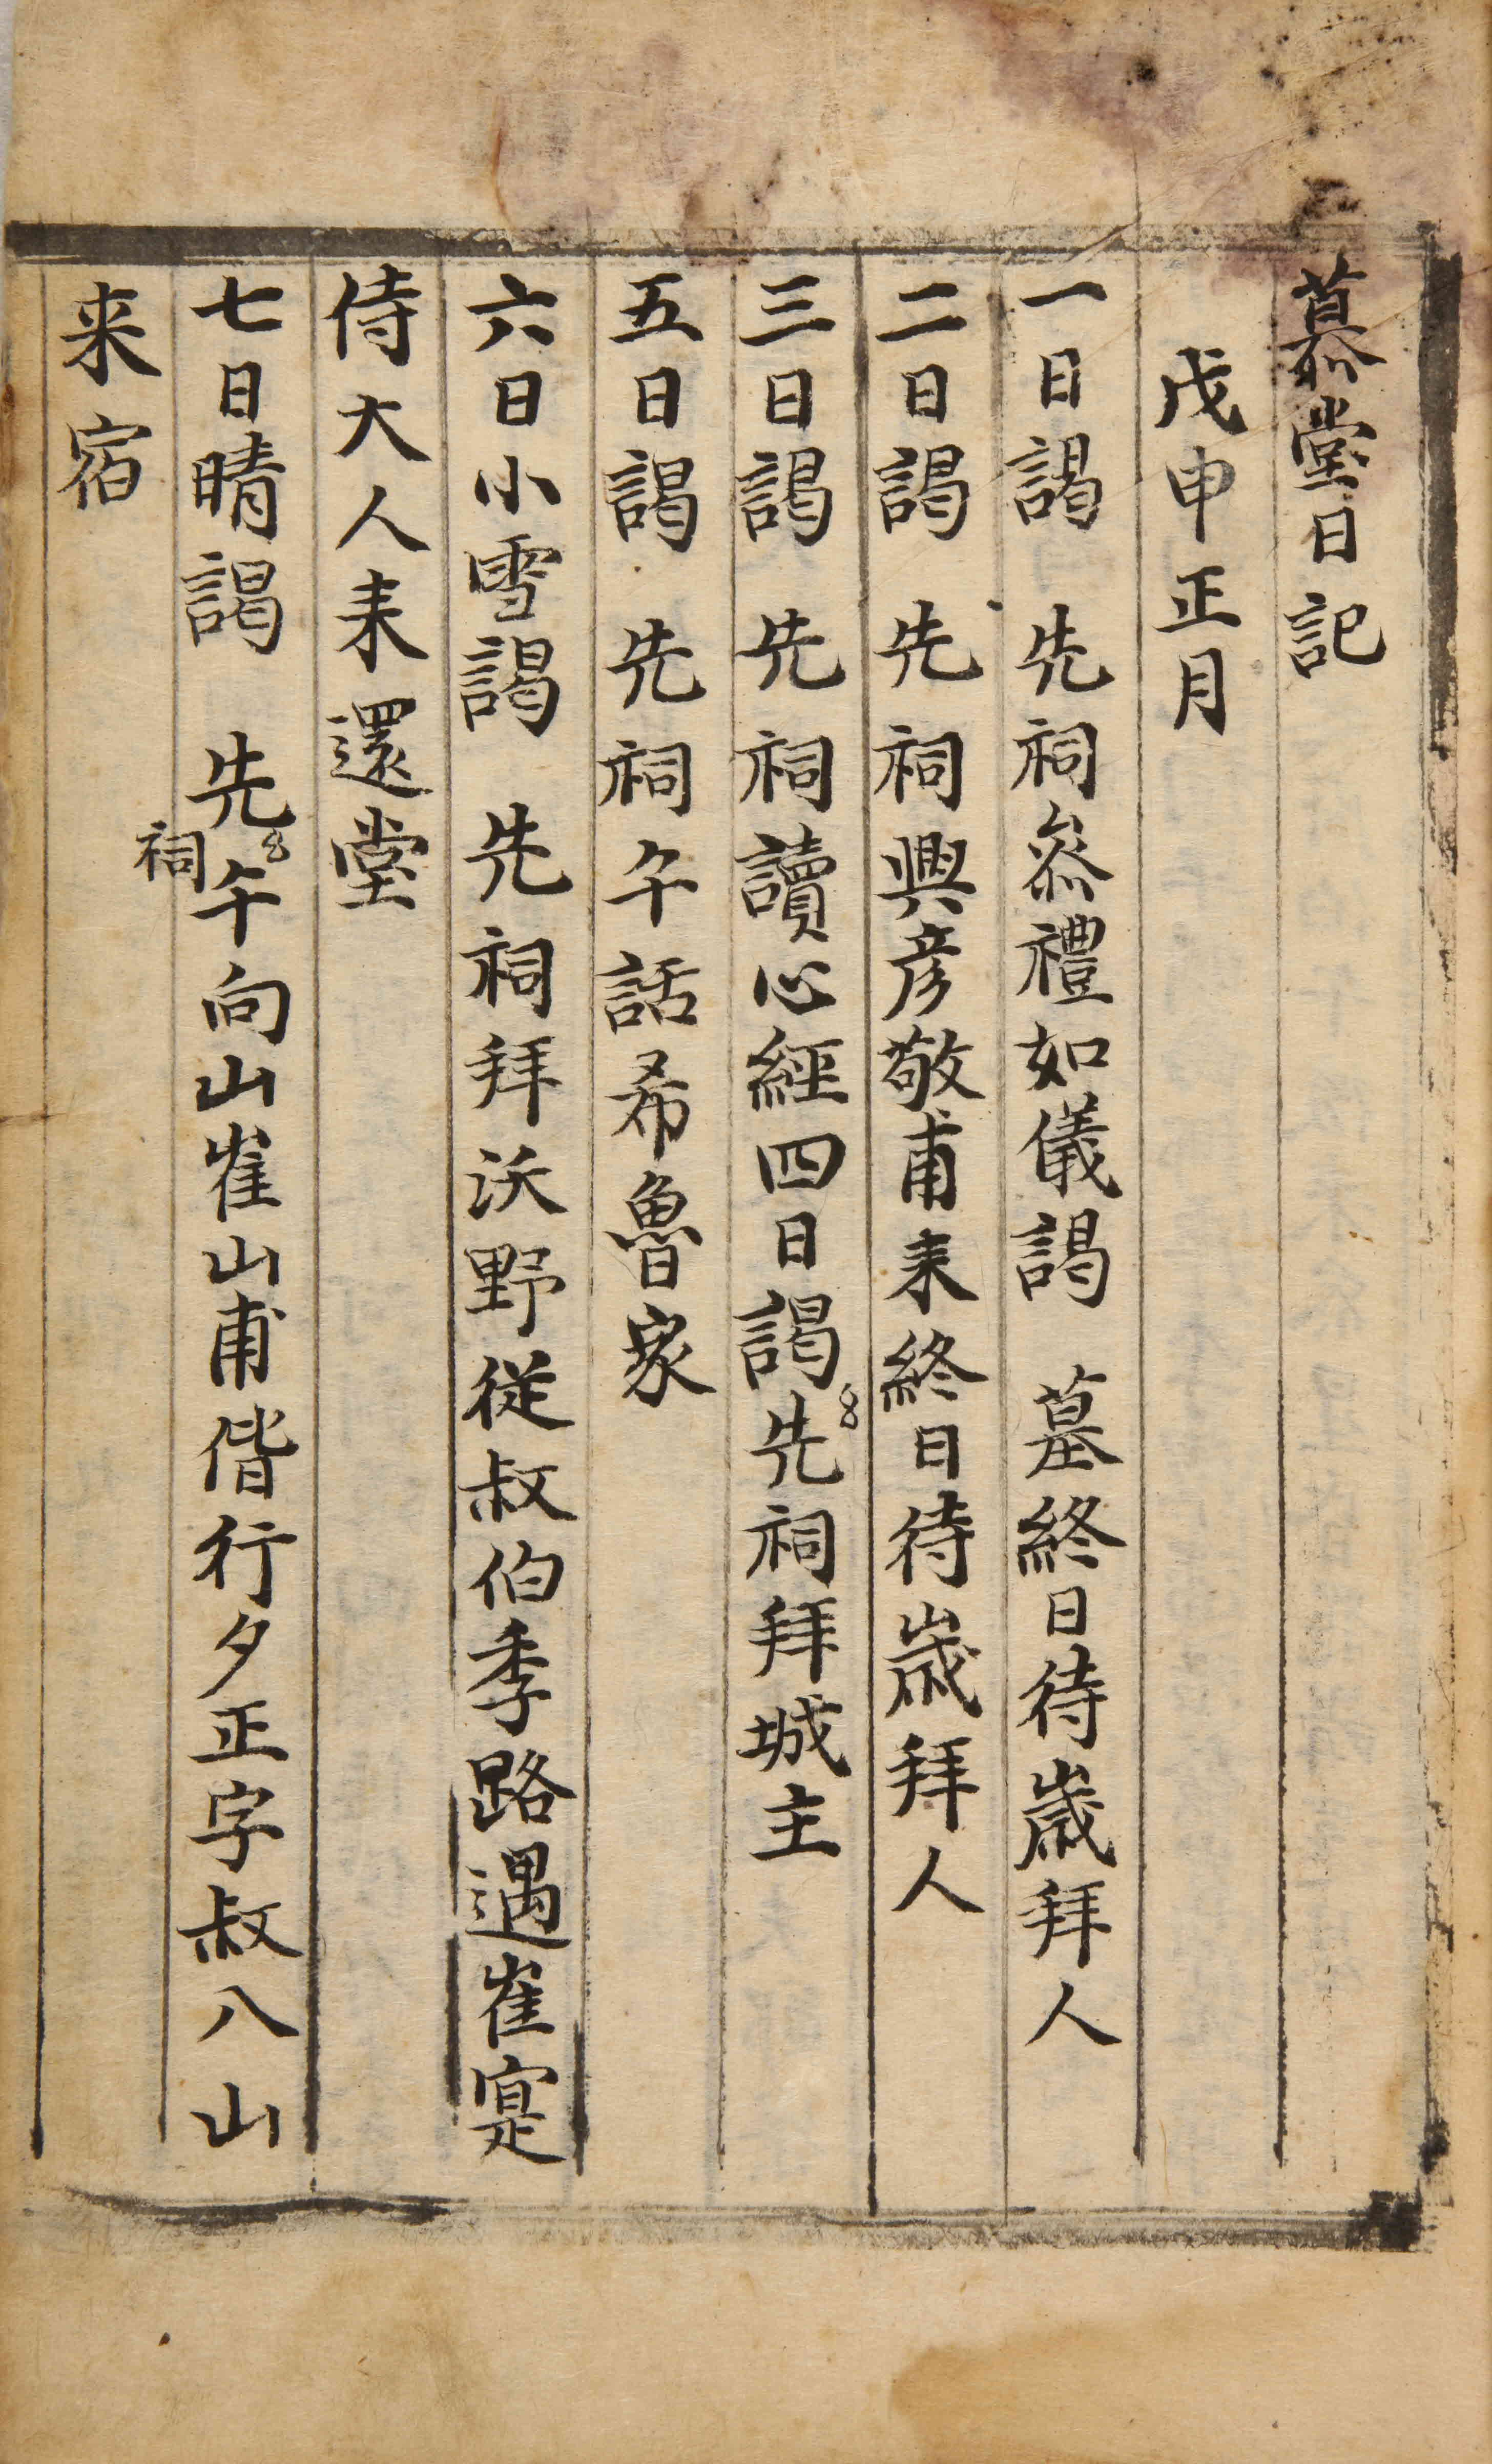 慕堂日記
戊申正月
一日謁 先祠叅禮如儀謁 墓終日待歲拜人
二日謁 先祠興彦敬甫来終日待歲拜人
三日謁 先祠讀心經四日謁先祠拜城主
五日謁 先祠午話希魯家
六日小雪謁 先祠拜沃野從叔伯季路遇崔寔
侍大人来還堂
七日晴謁 先祠午向山崔山甫偕行夕正字叔八山
来宿